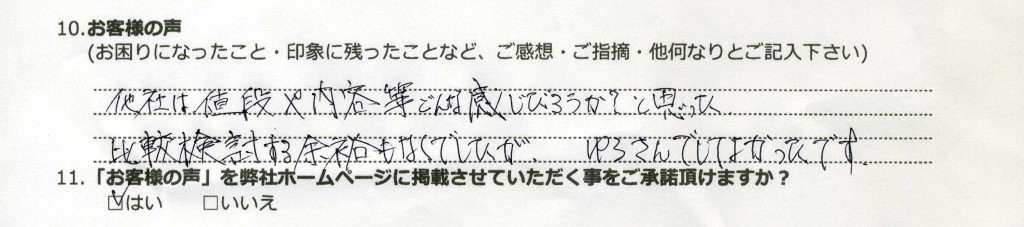 10.お客様の声
(お困りになったこと・印象に残ったことなど、ご感想・ご指摘・他何なりとご記入下さい)
他社は値段や内容等どんな感じだろうか?と思った
比較検討する余裕もなくでしたが、 さんでしてよかったです。
11.「お客様の声」を弊社ホームページに掲載させていただく事をご承諾頂けますか?
☑はい □いいえ